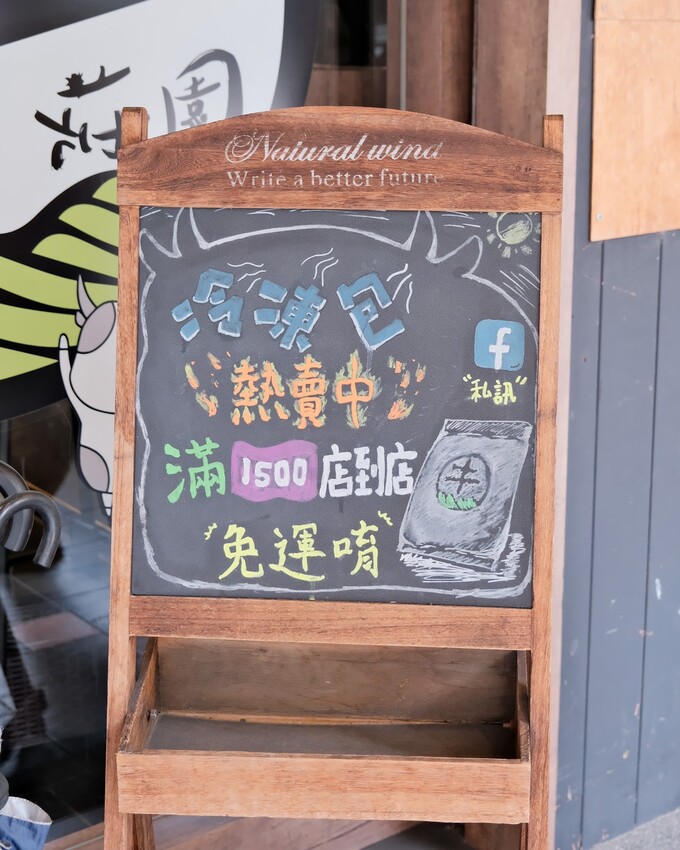 莊園
Natural wind
Write a better future
冷凍包
f
熱賣中
"私訊"
滿1500店到店
免運唷